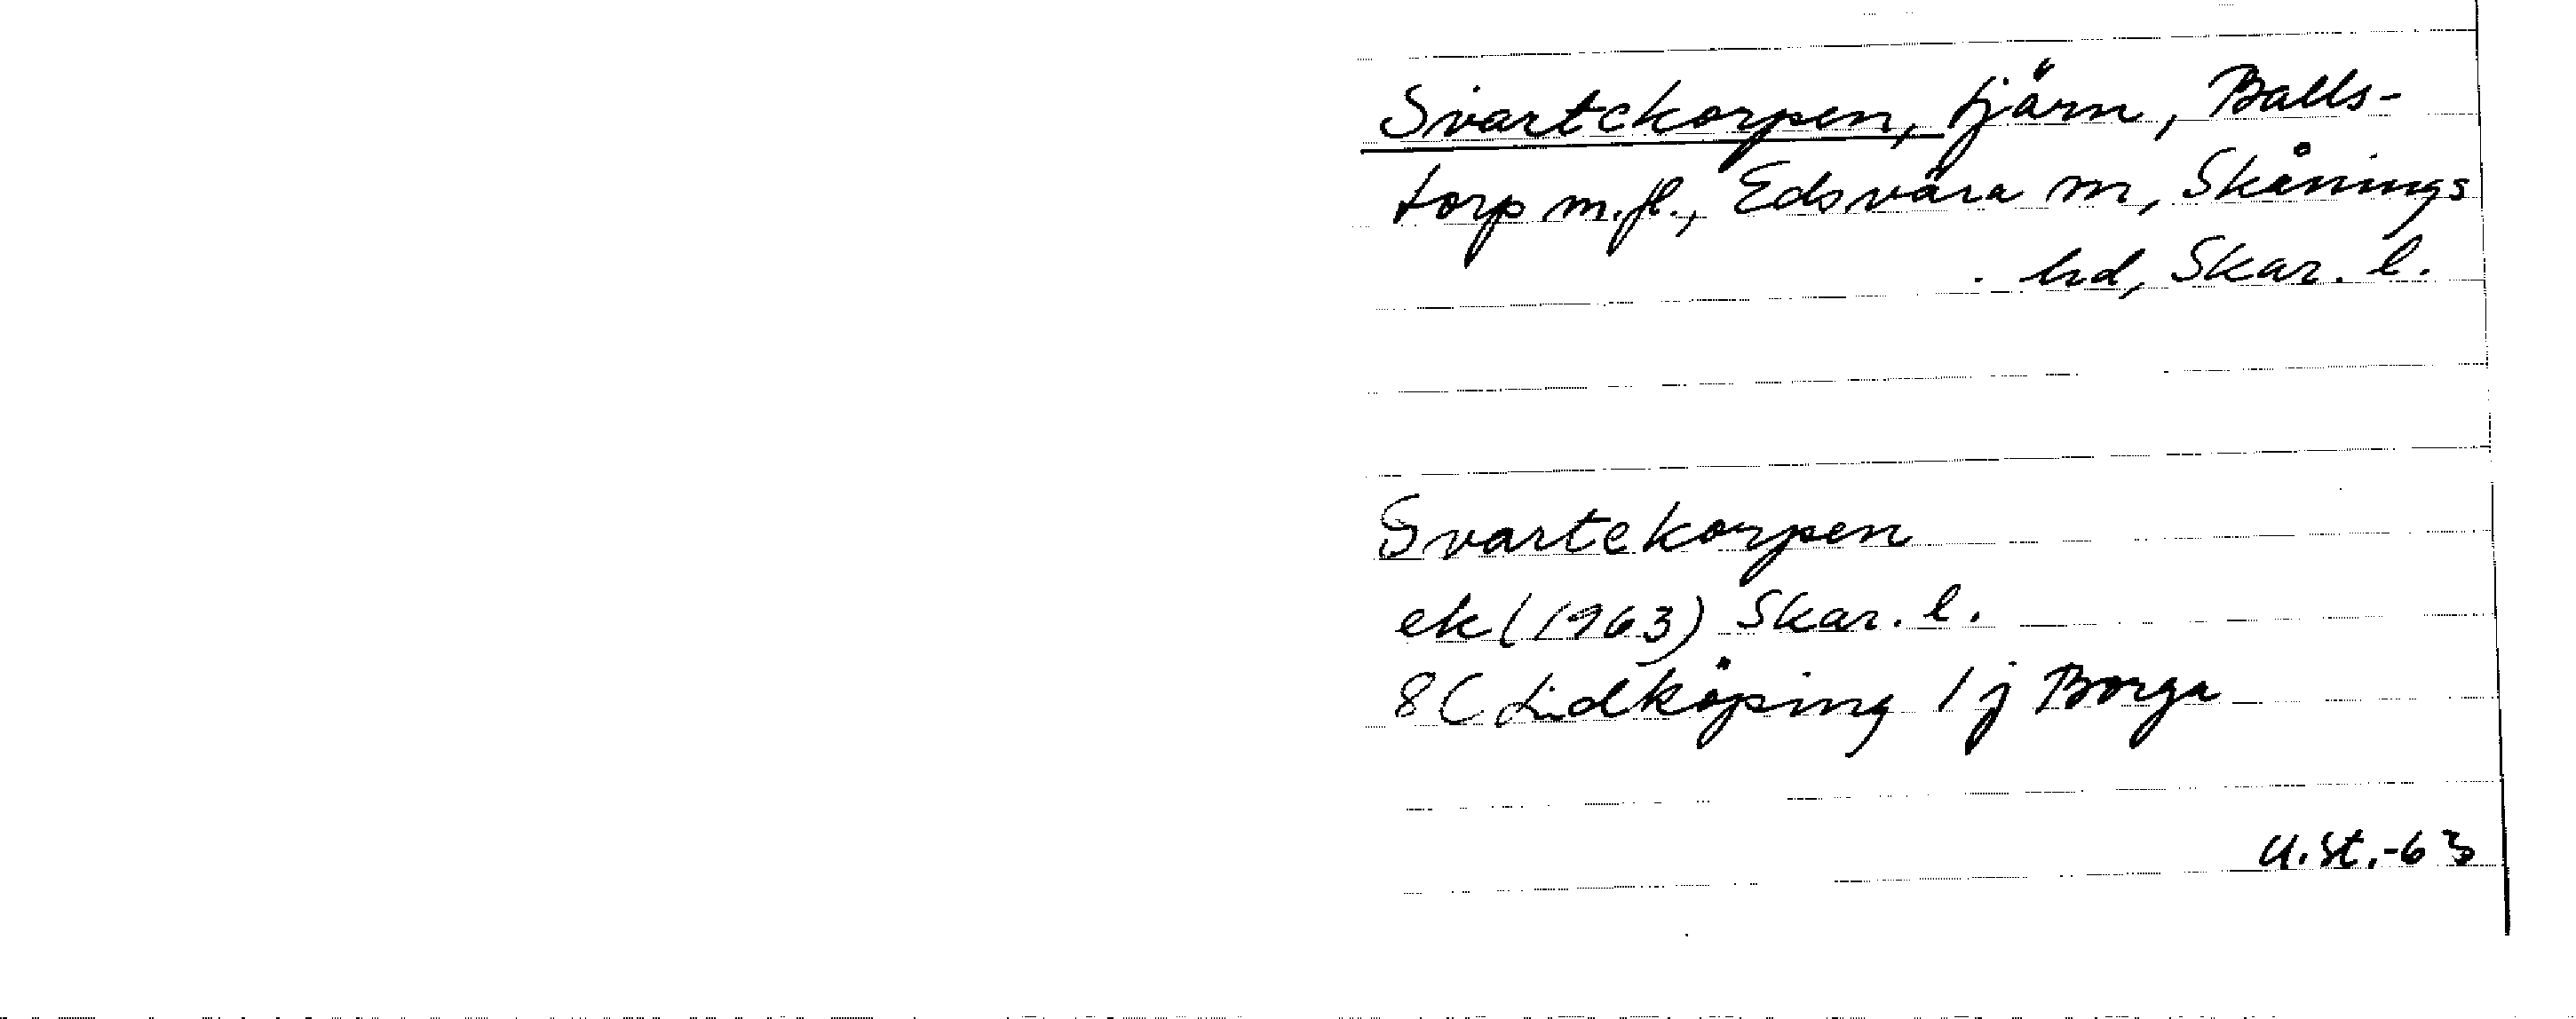 Svartekorpen, tjärn, Balls-
torp m.fl., Edsvära sn, Skånings
hd, Skar. l.
Svartekorpen
ek (1963) Skar. l.
8C Lidköping 1 j Borga
U.St.-63